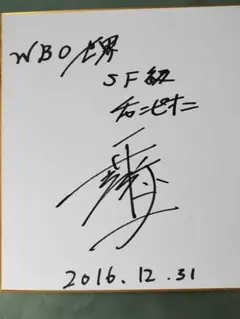 WBO世界
SF級
チャンピオン
2016.12.31